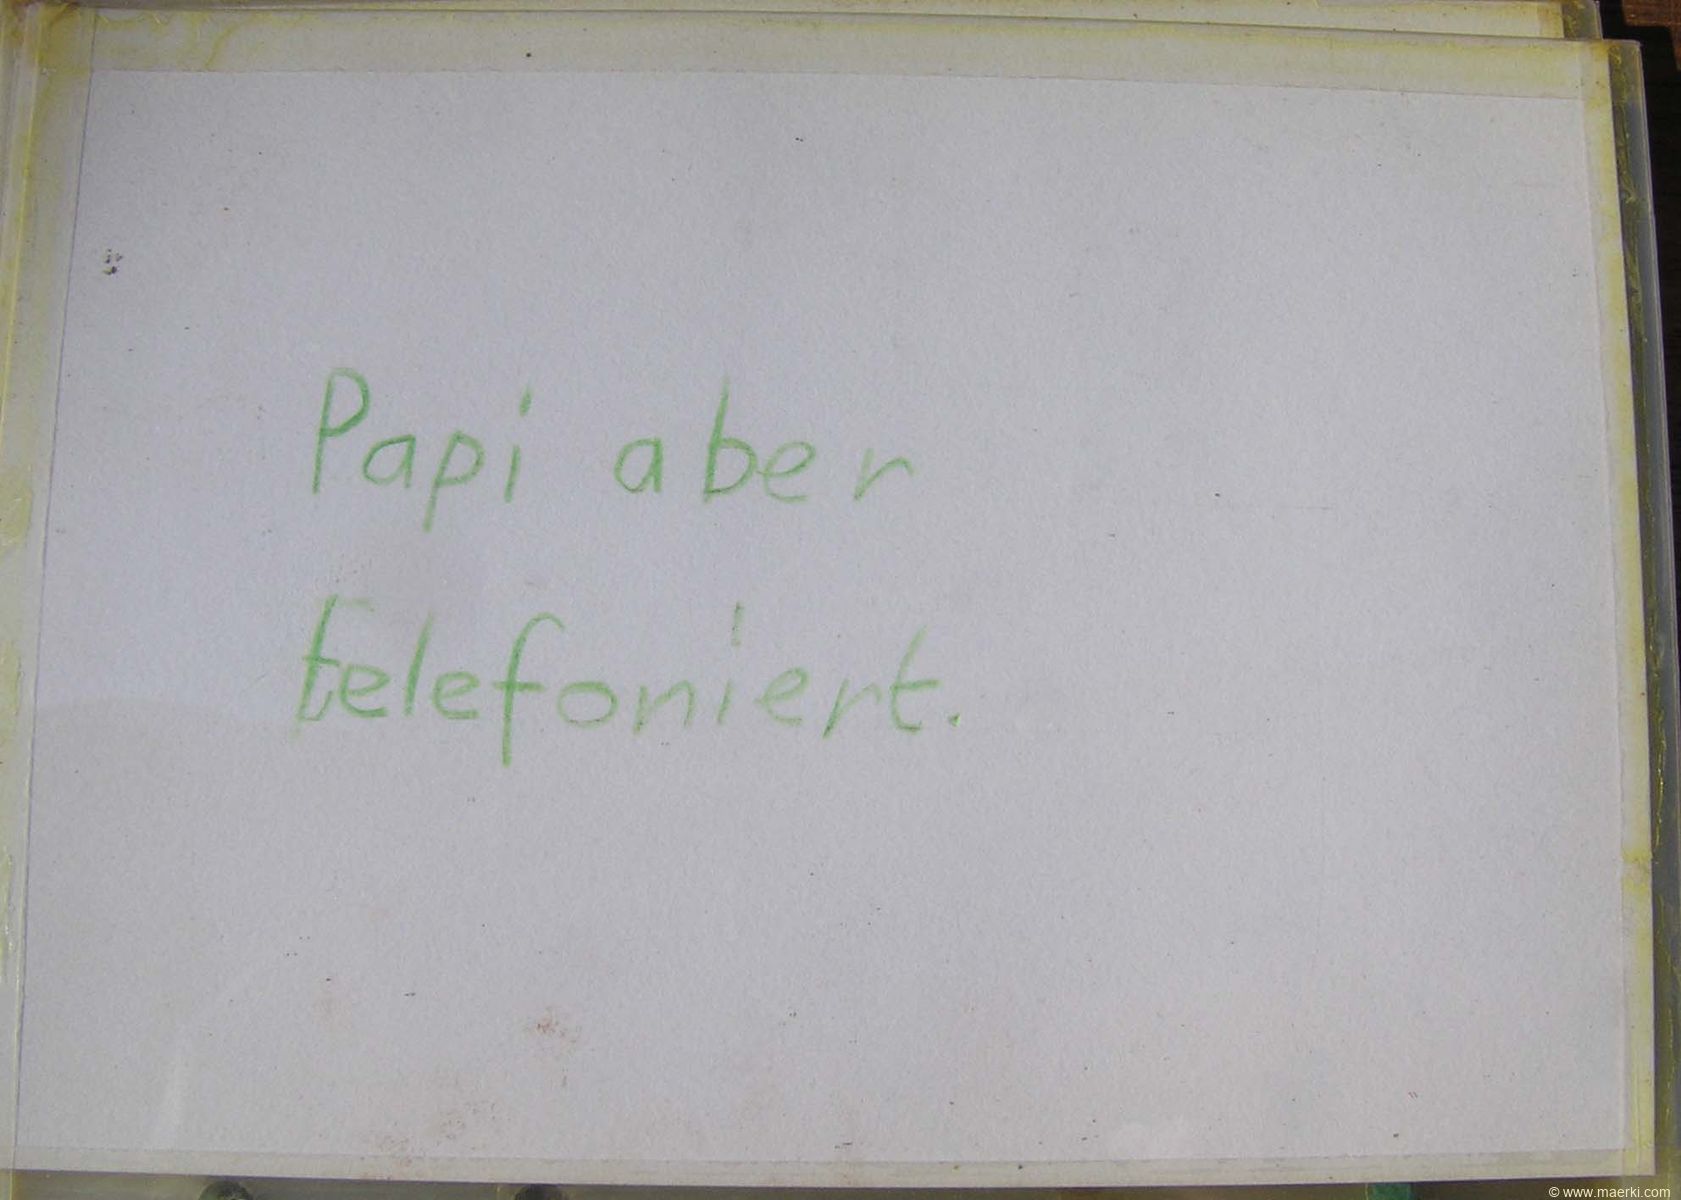 Papi aber
telefoniert.
© www.maerki.com